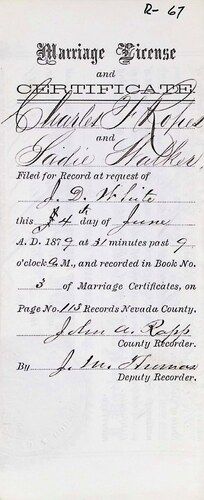 R- 67
Marriage License
and
CERTIFICATE
Charles F. Ropes
and
Sadie Walker,
Filed for Record at request of
J. D. White
this 4th day of June
A. D. 1879 at 31 minutes past 9
o'clock A M., and recorded in Book No.
5 of Marriage Certificates, on
Page No. 115 Records Nevada County.
John A. Rapp
County Recorder.
By J. M. Thomas
Deputy Recorder.